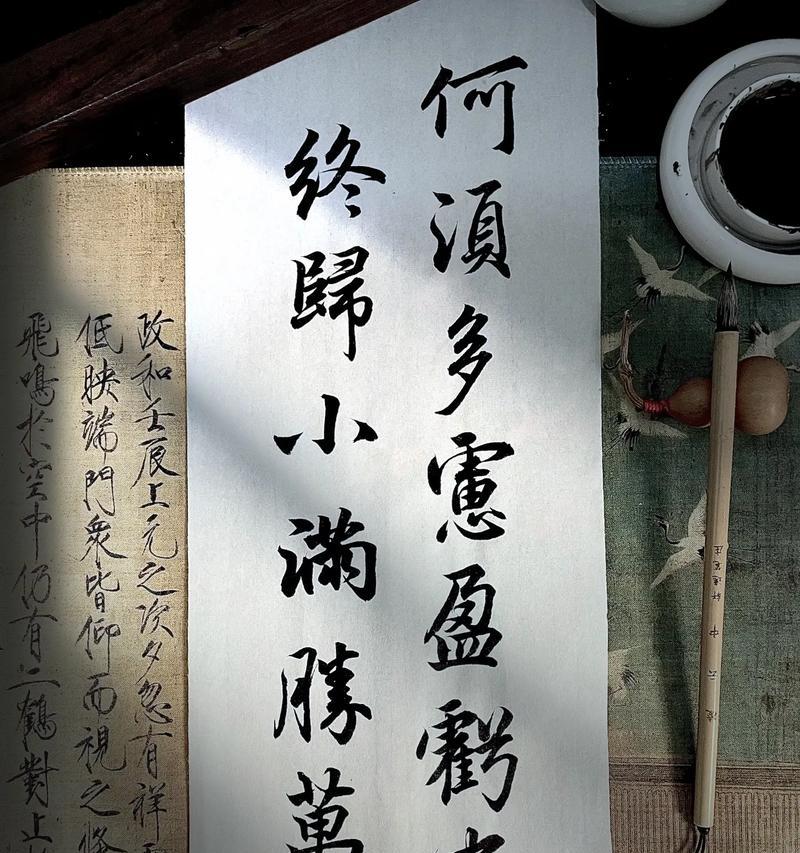 何須多慮盈虧
終歸小滿勝萬
政和壬辰上元之次夕忽有祥
低映端門衆皆仰而視之倏
飛鳴於空中仍有二鶴對止